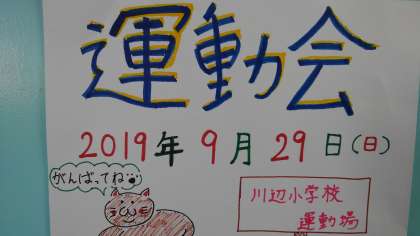 運動会
2019年9月29日(日)
がんばってね
川辺小学校
運動場